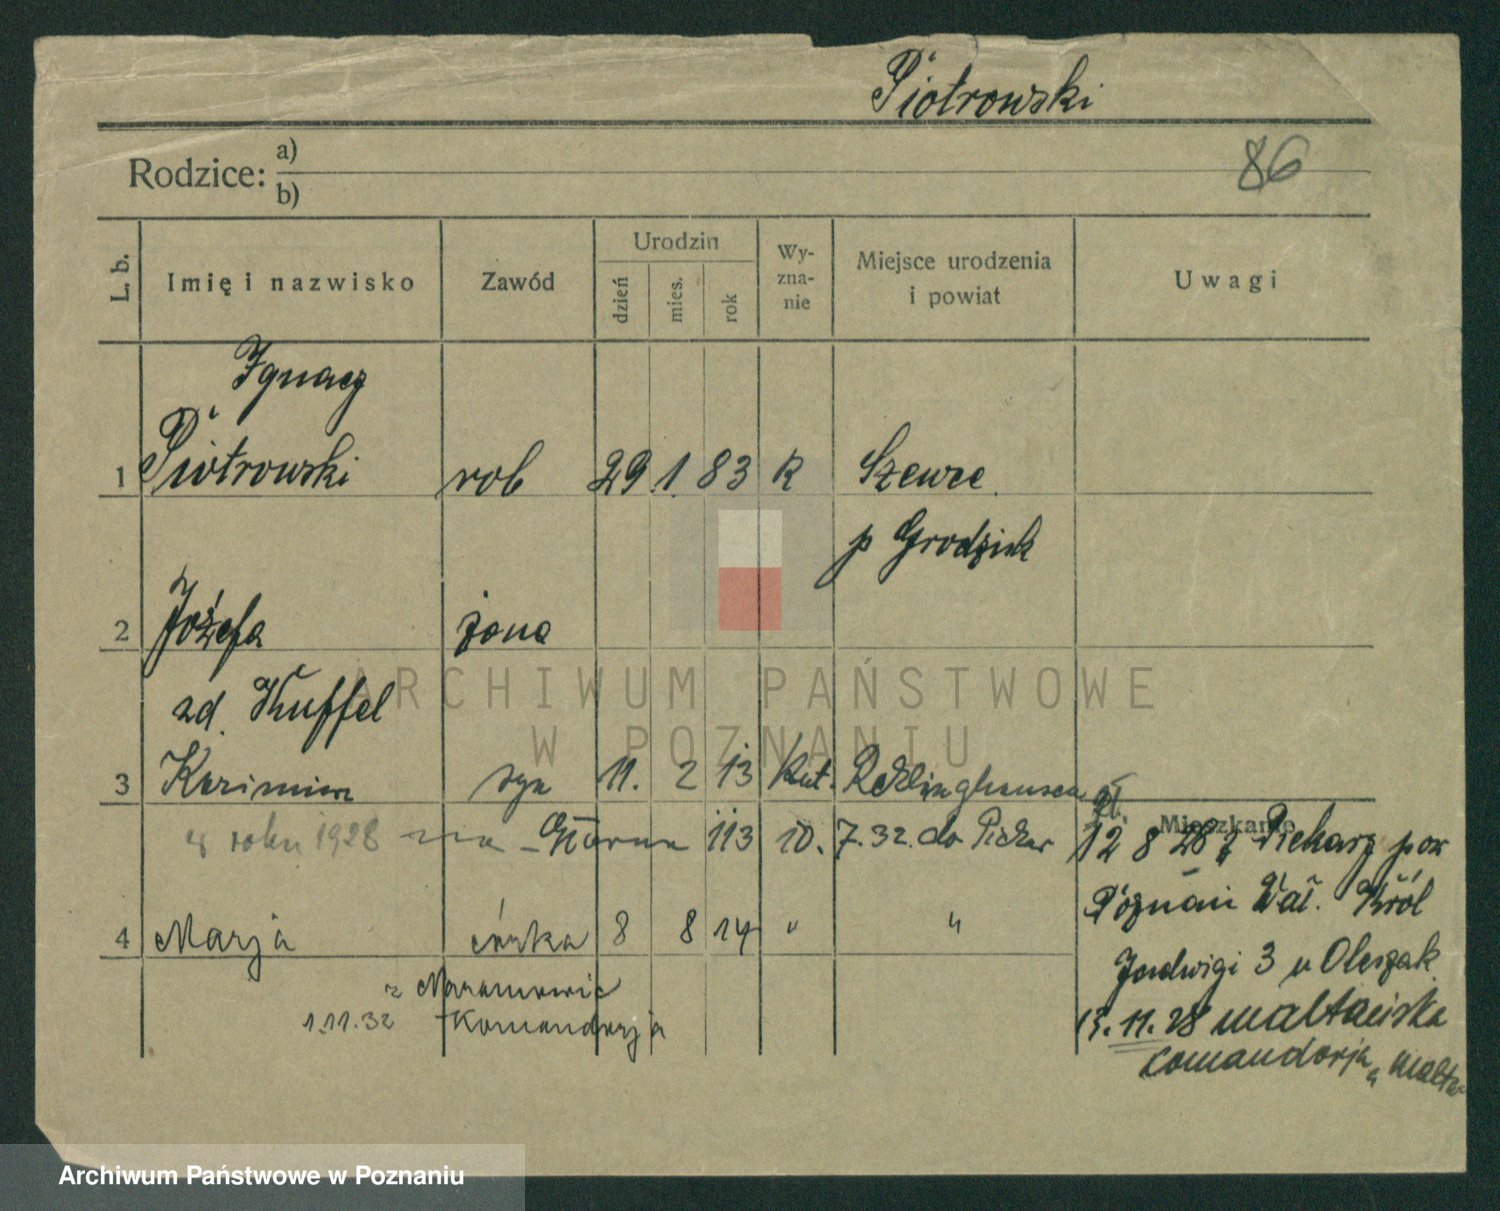 Piotrowski
Rodzice: a)
b)
86
L. b.
Imię i nazwisko
Zawód
Urodzin
dzień
mies.
rok
Wy-
zna-
nie
Miejsce urodzenia
i powiat
Uwagi
Ignacy
1 Piotrowski rob 29 1. 83 K Szewce.
p Grodzisk
2 Józefa żona
zd. Kuffel
3 Kazimierz syn 11. 2 13 Kat. Recklinghausen
w roku 1928 na Górna 113 10. 7. 32. do Piekar
Mieszkanie
12 8 28 z Piekary pow
Poznań Wał. Król
Jadwigi 3 u Oleszak
4 Marja córka 8 8 14 " "
z Maramowic
1.11.32 Komandorja
15. 11. 28 maltańska
Komandorja
ARCHIWUM PAŃSTWOWE
W POZNANIU
Archiwum Państwowe w Poznaniu